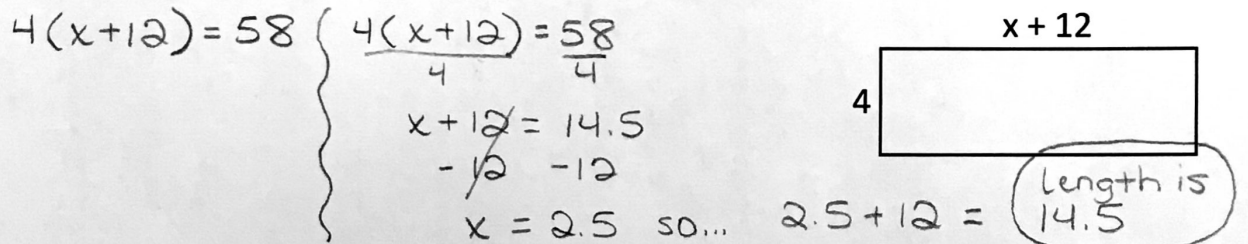 4(x+12)=58
4(x+12) = 58
4 4
x+12 = 14.5
-12 -12
x = 2.5 so... 2.5+12 =
length is
14.5
x + 12
4